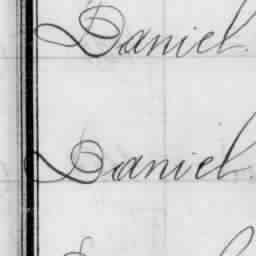 Daniel.
Daniel.